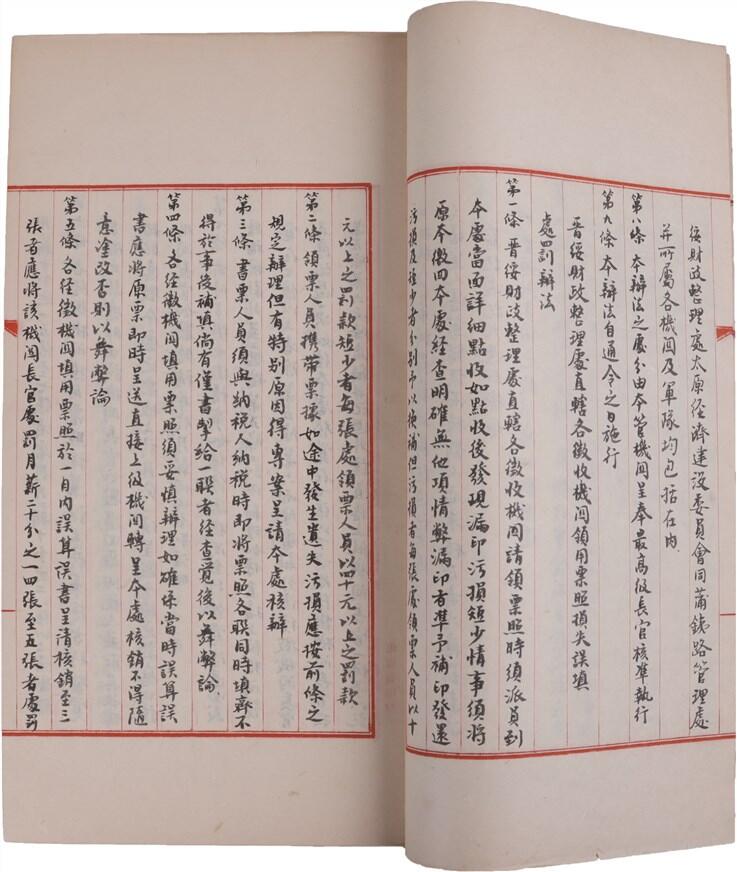 綏財政整理處太原経濟建設委員會同蒲鉄路管理處
並所屬各機関及軍隊均包括在內
第八條 本辦法之處分由本管機関呈奉最高級長官核准執行
第九條 本辦法自通令之日施行
晋綏財政整理處直轄各徵收機関領用票照損失誤填
處罰辦法
第一條 晋綏財政整理處直轄各徵收機関請領票照時須派員到
本處當面詳細點收如點收後發現漏印污損短少情事須將
原本徵回本處経查明確無他項情弊漏印者準予補印發還
污損及短少者分别予以換補但污損者每張處領票人員以十
元以上之罰款短少者每張處領票人員以四十元以上之罰款
第二條 領票人員携带票據如途中發生遺失污損應按前條之
規定辦理但有特别原因得專案呈請本處核辦
第三條 書票人員須與納税人納税時即將票照各聯同時填齊不
得於事後補填倘有僅書掣給一聯者経查覺後以舞弊論
第四條 各経徵機関填用票照須妥慎辦理如確係當時誤算誤
書應將原票即時呈送直接上级機関轉呈本處核銷不得隨
意塗改否則以舞弊論
第五條 各経徵機関填用票照於一月內誤算誤書呈請核銷至三
張者應將該機関長官處罰月薪二十分之一四張至五張者處罰